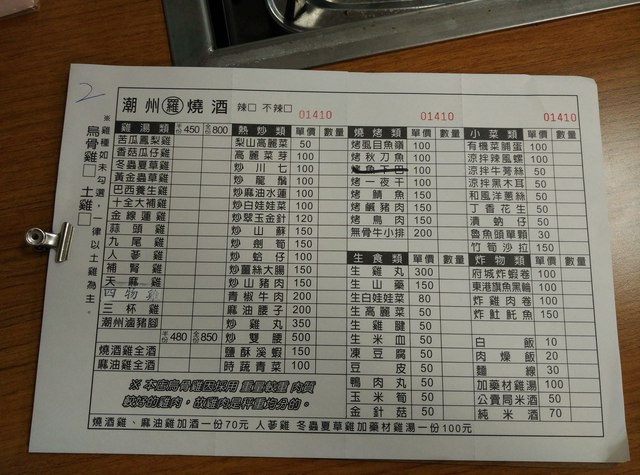 2
潮州羅燒酒 辣□ 不辣□
01410 01410 01410
※雞種如未勾選，一律以土雞為主。
烏骨雞□ 土雞□
雞湯類 450 800
苦瓜鳳梨雞
香菇瓜仔雞
冬蟲夏草雞
黃金蟲草雞
巴西養生雞
十全大補雞
金線蓮雞
蒜頭雞
九尾雞
人蔘雞
補腎雞
天麻雞
四物雞
三杯雞
潮州滷豬腳
480 850
燒酒雞全酒
麻油雞全酒
熱炒類 單價 數量
梨山高麗菜 50
高麗菜芽 100
炒川七 100
炒龍鬚 100
炒麻油水蓮 100
炒白娃娃菜 100
炒翠玉金針 120
炒山蘇 150
炒劍筍 150
炒蛤仔 100
炒薑絲大腸 150
炒山豬肉 150
青椒牛肉 200
麻油腰子 200
炒雞丸 350
炒雙腰 500
鹽酥溪蝦 150
時蔬青菜 100
燒烤類 單價 數量
烤虱目魚嶺 100
烤秋刀魚 100
烤魚下巴 100
烤一夜干 100
烤鯖魚 150
烤鹹豬肉 150
烤鳥肉 150
無骨牛小排 200
生食類 單價 數量
生雞丸 300
生山藥 150
生白娃娃菜 80
生高麗菜 50
生雞腱 50
生米血 50
凍豆腐 50
豆皮 50
鴨肉丸 50
玉米筍 50
金針菇 50
小菜類 單價 數量
有機菜脯蛋 100
涼拌辣風螺 100
涼拌牛蒡絲 50
涼拌黑木耳 50
和風洋蔥絲 50
丁香花生 50
漬蚋仔 50
魯魚頭單顆 30
竹筍沙拉 150
炸物類 單價 數量
府城炸蝦卷 100
東港旗魚黑輪 100
炸雞肉卷 100
炸魠魠魚 150
白飯 10
肉燥飯 20
麵線 30
加藥材雞湯 100
公賣局米酒 50
純米酒 70
※本店烏骨雞因採用 重量較重 肉質
較好的雞肉，故雞肉是秤重均分的。
燒酒雞、麻油雞加酒一份70元 人蔘雞 冬蟲夏草雞加藥材雞湯一份100元